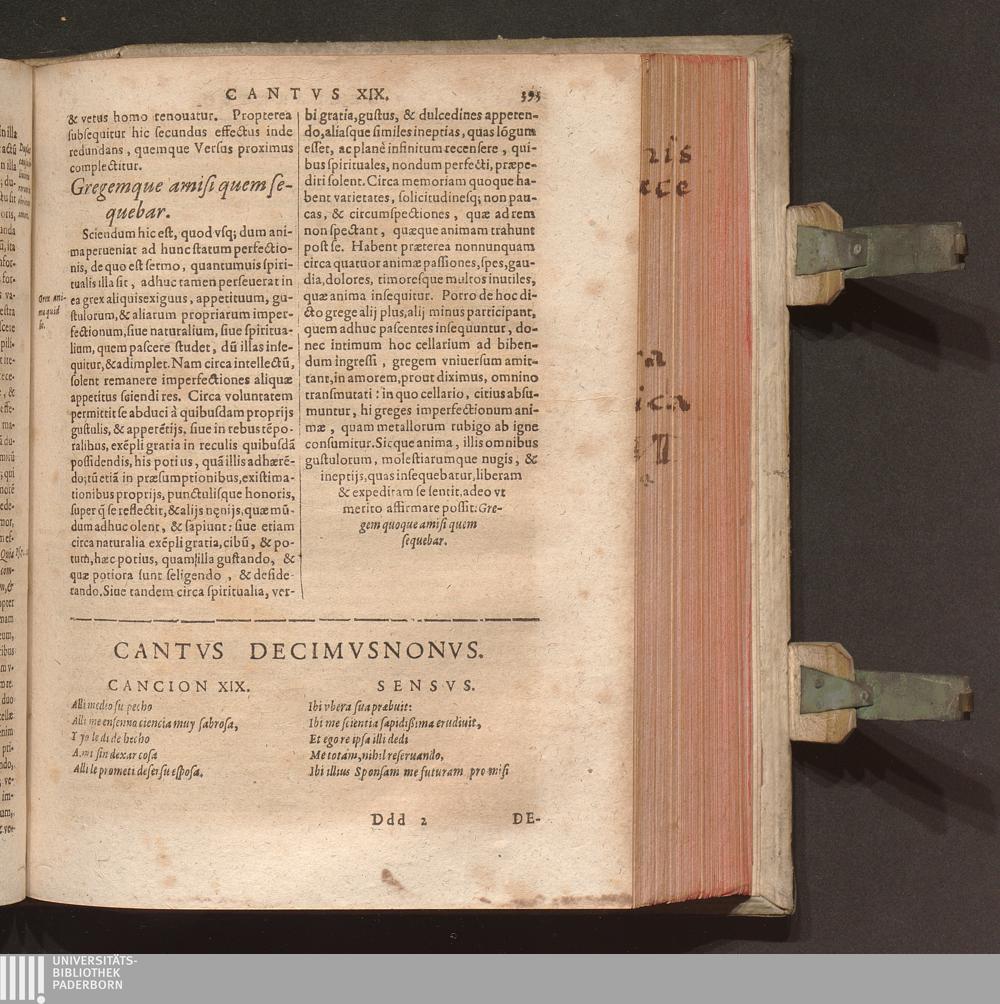 CANTVS XIX.
395
& vetus homo renouatur. Propterea
subsequitur hic secundus effectus inde
redundans, quemque Versus proximus
complectitur.
Gregemque amisi quem se-
quebar.
Sciendum hic est, quod vsq; dum ani-
ma perueniat ad hunc statum perfectio-
nis, de quo est sermo, quantumuis spiri-
tualis illa sit, adhuc tamen perseuerat in
ea grex aliquis exiguus, appetituum, gu-
stulorum, & aliarum propriarum imper-
fectionum, siue naturalium, siue spiritua-
lium, quem pascere studet, dū illas inse-
quitur, & adimplet. Nam circa intellectū,
solent remanere imperfectiones aliquæ
appetitus sciendi res. Circa voluntatem
permittit se abduci à quibusdam proprijs
gustulis, & appetētijs, siue in rebus tēpo-
ralibus, exēpli gratia in reculis quibusdā
possidendis, his potius, quā illis adhærē-
do; tū etiā in præsumptionibus, existima-
tionibus proprijs, punctulisque honoris,
super q̃ se reflectit, & alijs nęnijs, quæ mū-
dum adhuc olent, & sapiunt: siue etiam
circa naturalia exēpli gratia, cibū, & po-
tum, hæc potius, quam illa gustando, &
quæ potiora sunt seligendo, & deside-
rando. Siue tandem circa spiritualia, ver-
Grex ani-
mæ quid
sit.
bi gratia, gustus, & dulcedines appeten-
do, aliasque similes ineptias, quas lōgum
esset, ac planè infinitum recensere, qui-
bus spirituales, nondum perfecti, præpe-
diri solent. Circa memoriam quoque ha-
bent varietates, solicitudinesq; non pau-
cas, & circumspectiones, quæ ad rem
non spectant, quæque animam trahunt
post se. Habent præterea nonnunquam
circa quatuor animæ passiones, spes, gau-
dia, dolores, timoresque multos inutiles,
quæ anima insequitur. Porro de hoc di-
cto grege alij plus, alij minus participant,
quem adhuc pascentes insequuntur, do-
nec intimum hoc cellarium ad biben-
dum ingressi, gregem vniuersum amit-
tant, in amorem, prout diximus, omnino
transmutati: in quo cellario, citius absu-
muntur, hi greges imperfectionum ani-
mæ, quam metallorum rubigo ab igne
consumitur. Sicque anima, illis omnibus
gustulorum, molestiarumque nugis, &
ineptijs, quas insequebatur, liberam
& expeditam se sentit, adeo vt
merito affirmare possit: Gre-
gem quoque amisi quem
sequebar.
CANTVS DECIMVSNONVS.
CANCION XIX.
Alli me dio su pecho
Alli me ensenno ciencia muy sabrosa,
Y yo le di de hecho
A mi sin dexar cosa
Alli le prometi de ser su esposa.
SENSVS.
Ibi vbera sua præbuit:
Ibi me scientia sapidißima erudiuit,
Et ego re ipsa illi dedi
Me totam, nihil reseruando,
Ibi illius Sponsam me futuram promisi
Ddd 2
DE-
UNIVERSITÄTS-
BIBLIOTHEK
PADERBORN